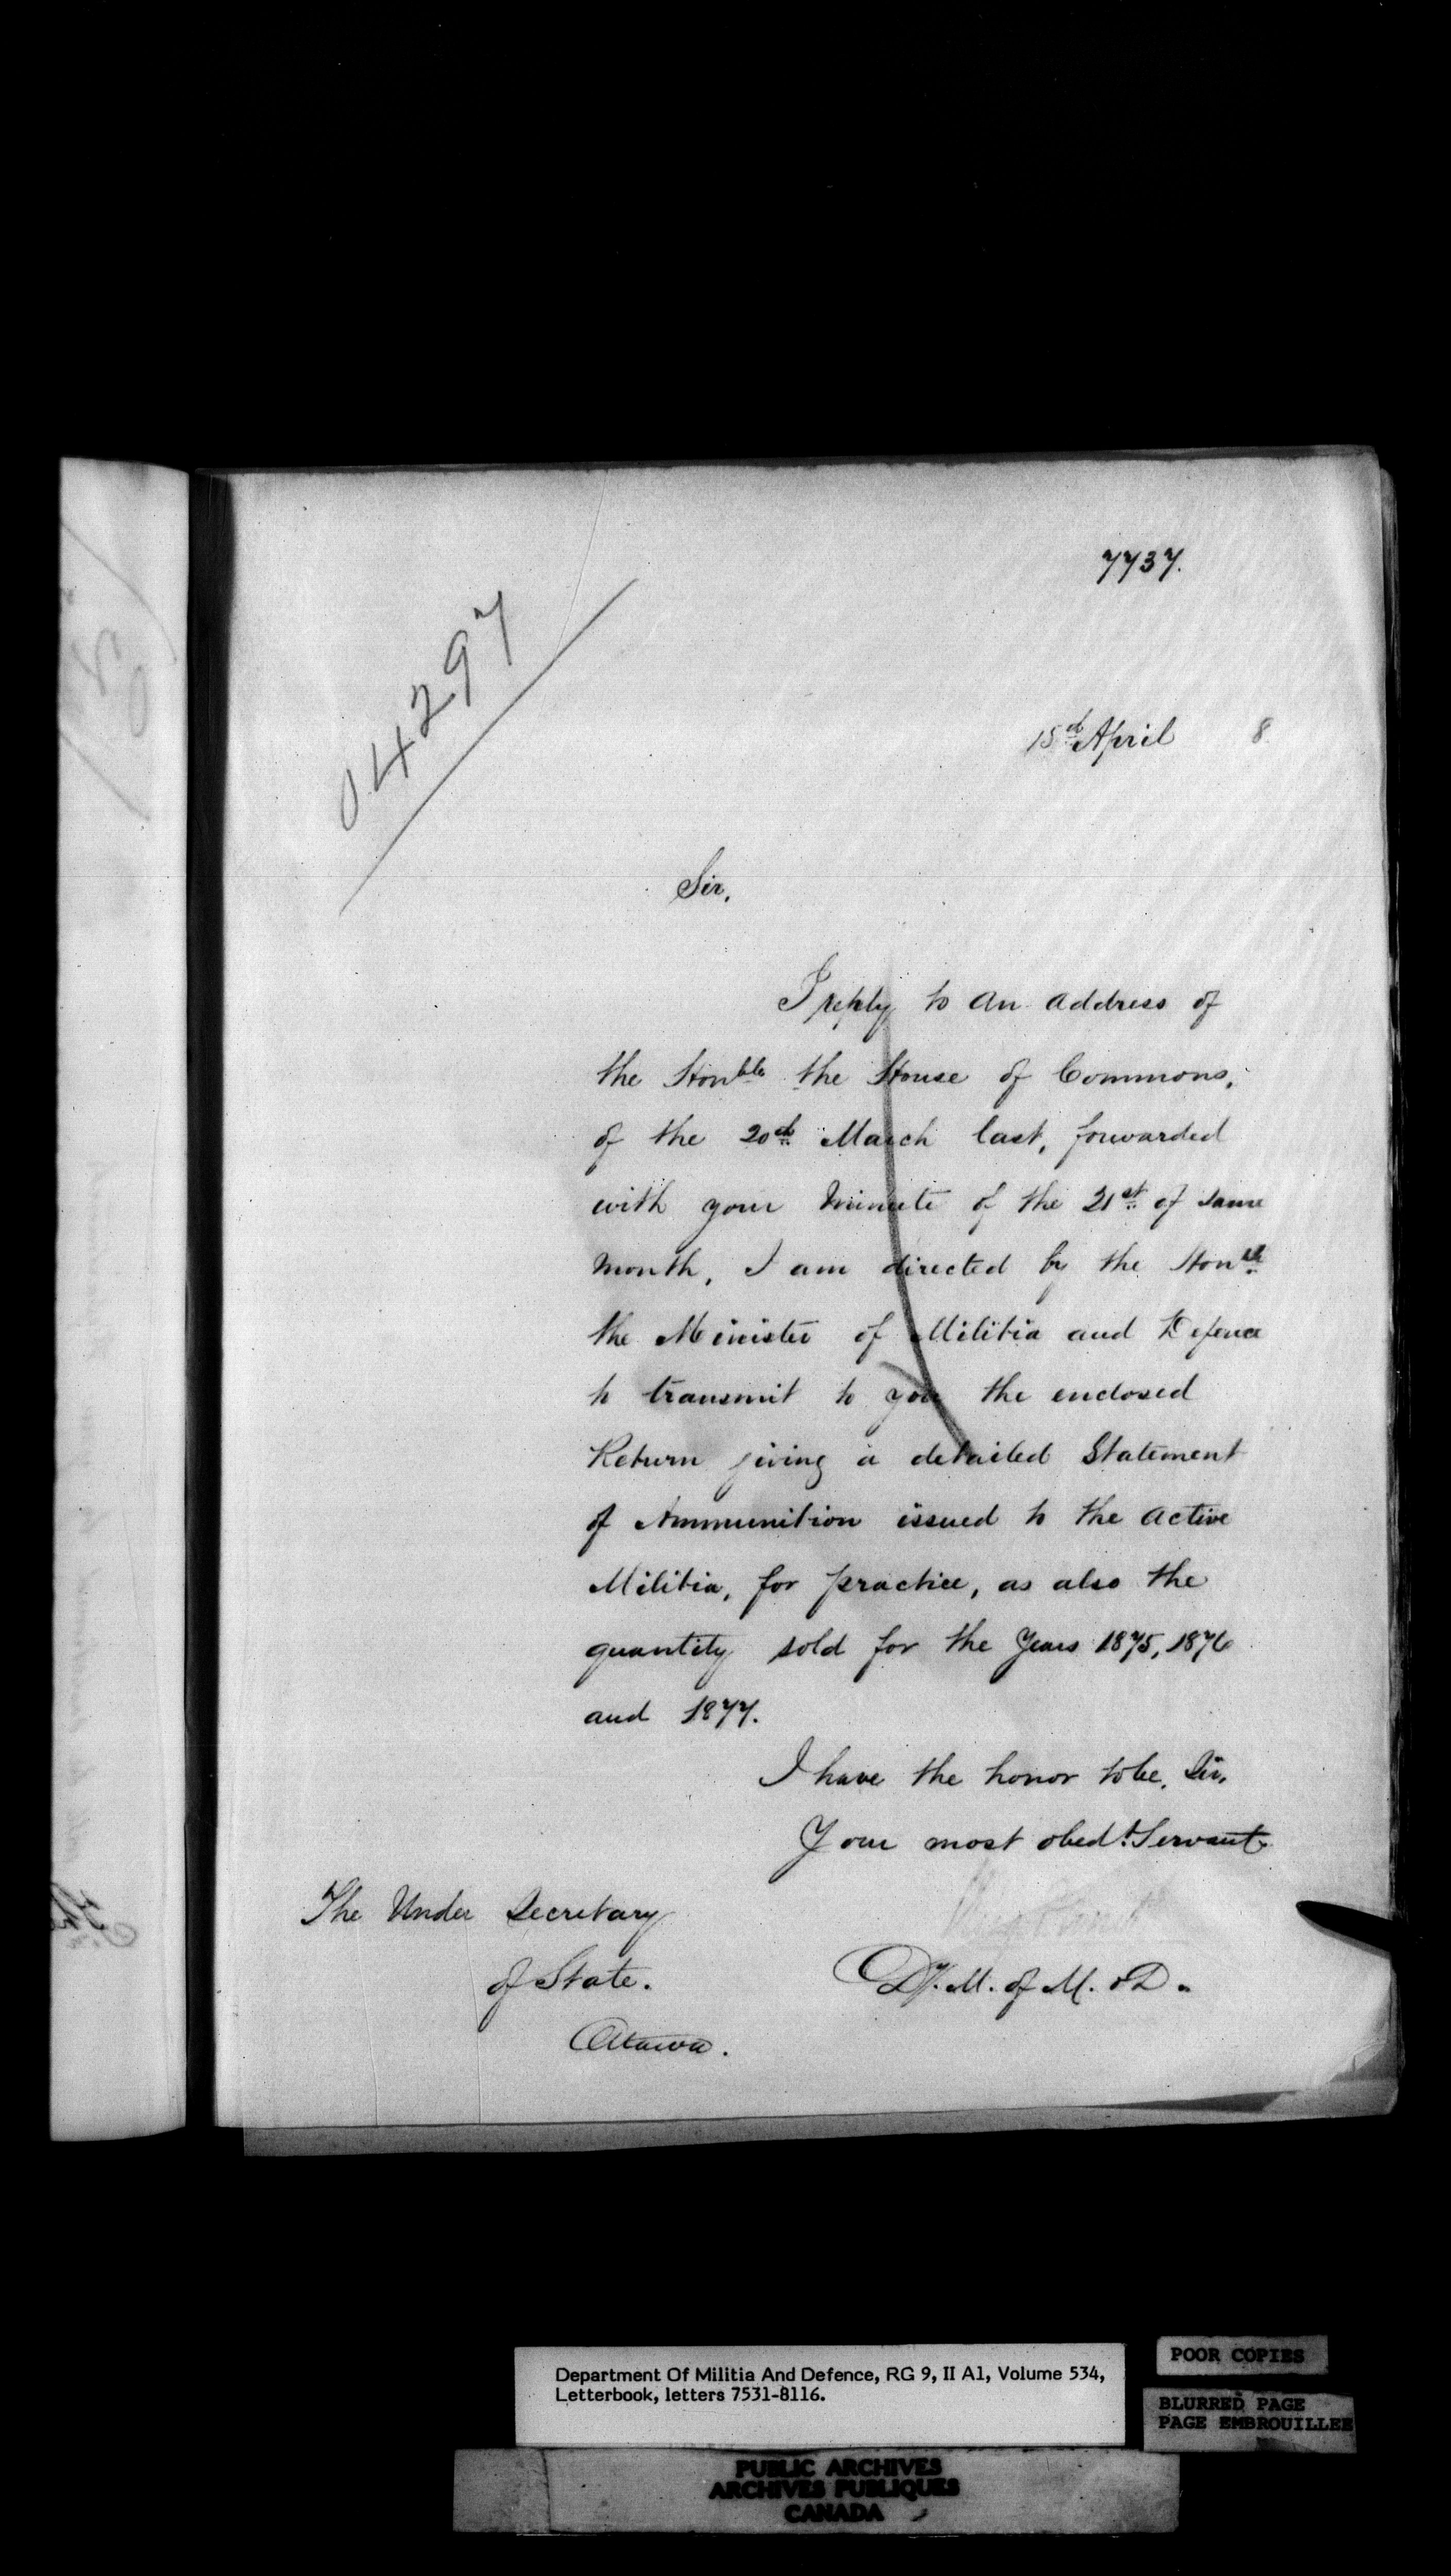 7737.
04297
15th April 8
Sir,
I reply to an address of
the Honble the House of Commons,
of the 20th March last, forwarded
with your Minute of the 21st of same
month, I am directed by the Honble
the Minister of Militia and Defence
to transmit to you the enclosed
Return giving a detailed Statement
of Ammunition issued to the Active
Militia, for practice, as also the
quantity sold for the Years 1875, 1876
and 1877.
I have the honor to be, Sir,
Your most obedt Servant
The Under Secretary
of State.
Ottawa.
Dy. M. of M. & D.
Department Of Militia And Defence, RG 9, II A1, Volume 534,
Letterbook, letters 7531-8116.
POOR COPIES
BLURRED PAGE
PAGE EMBROUILLEE
PUBLIC ARCHIVES
ARCHIVES PUBLIQUES
CANADA